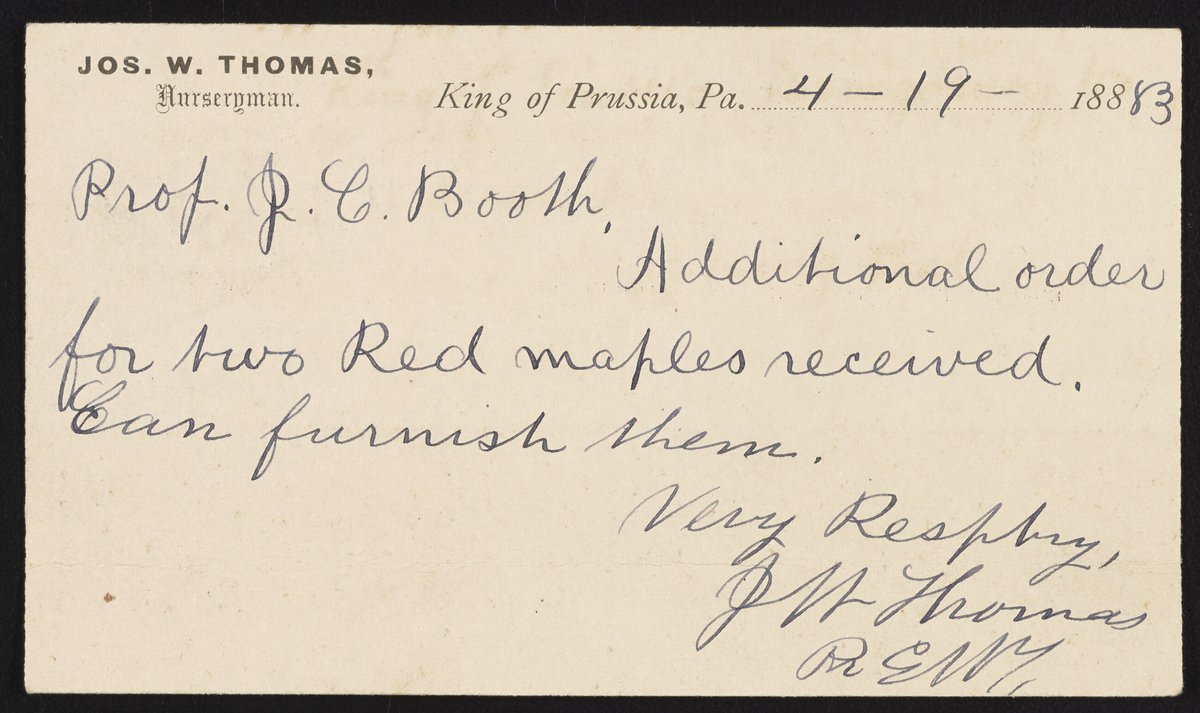 JOS. W. THOMAS,
Nurseryman.
King of Prussia, Pa. 4 – 19 – 18883
Prof. J. C. Booth,
Additional order
for two Red maples received.
Can furnish them.
Very Respty,
J W Thomas
Pr EWT,